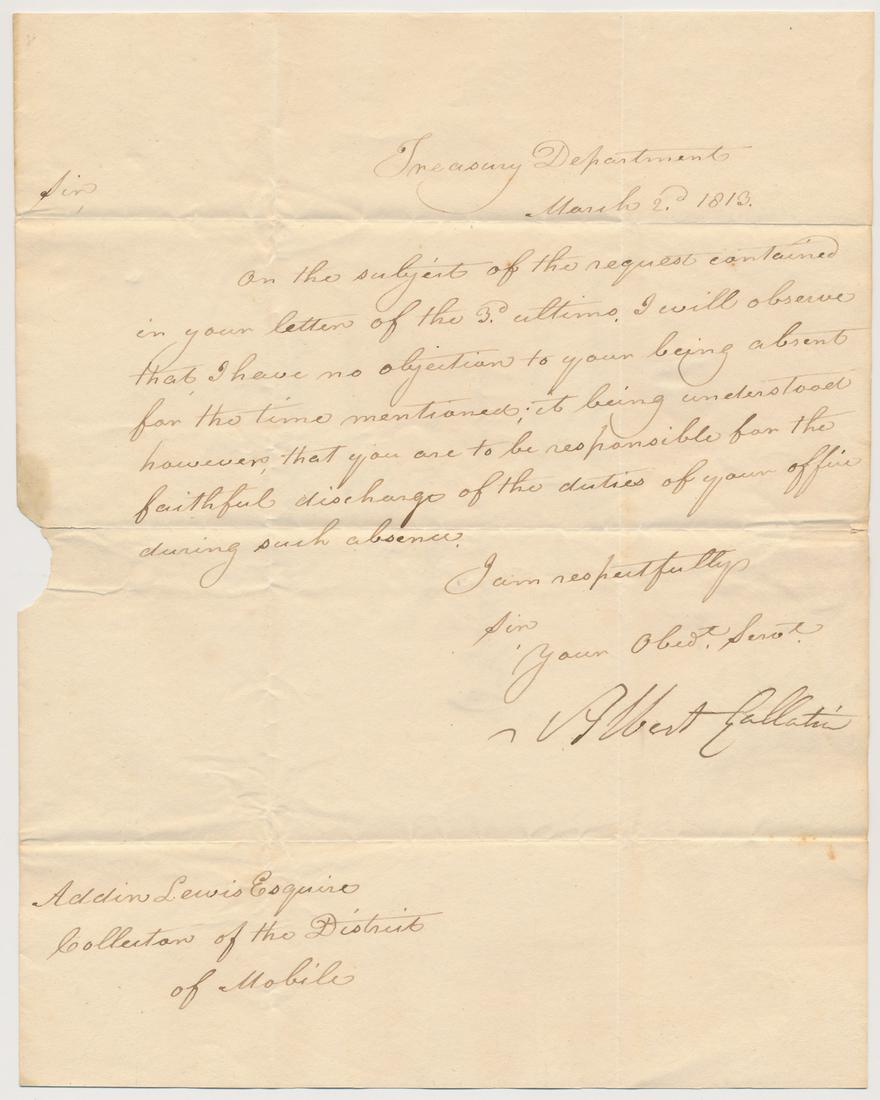 Treasury Department
March 2d 1813.
Sir,
On the subject of the request contained
in your letter of the 3d ultimo, I will observe
that I have no objection to your being absent
for the time mentioned; it being understood
however, that you are to be responsible for the
faithful discharge of the duties of your office
during such absence.
I am respectfully
Sir
Your Obedt. Servt.
Albert Gallatin
Addin Lewis Esquire
Collector of the District
of Mobile